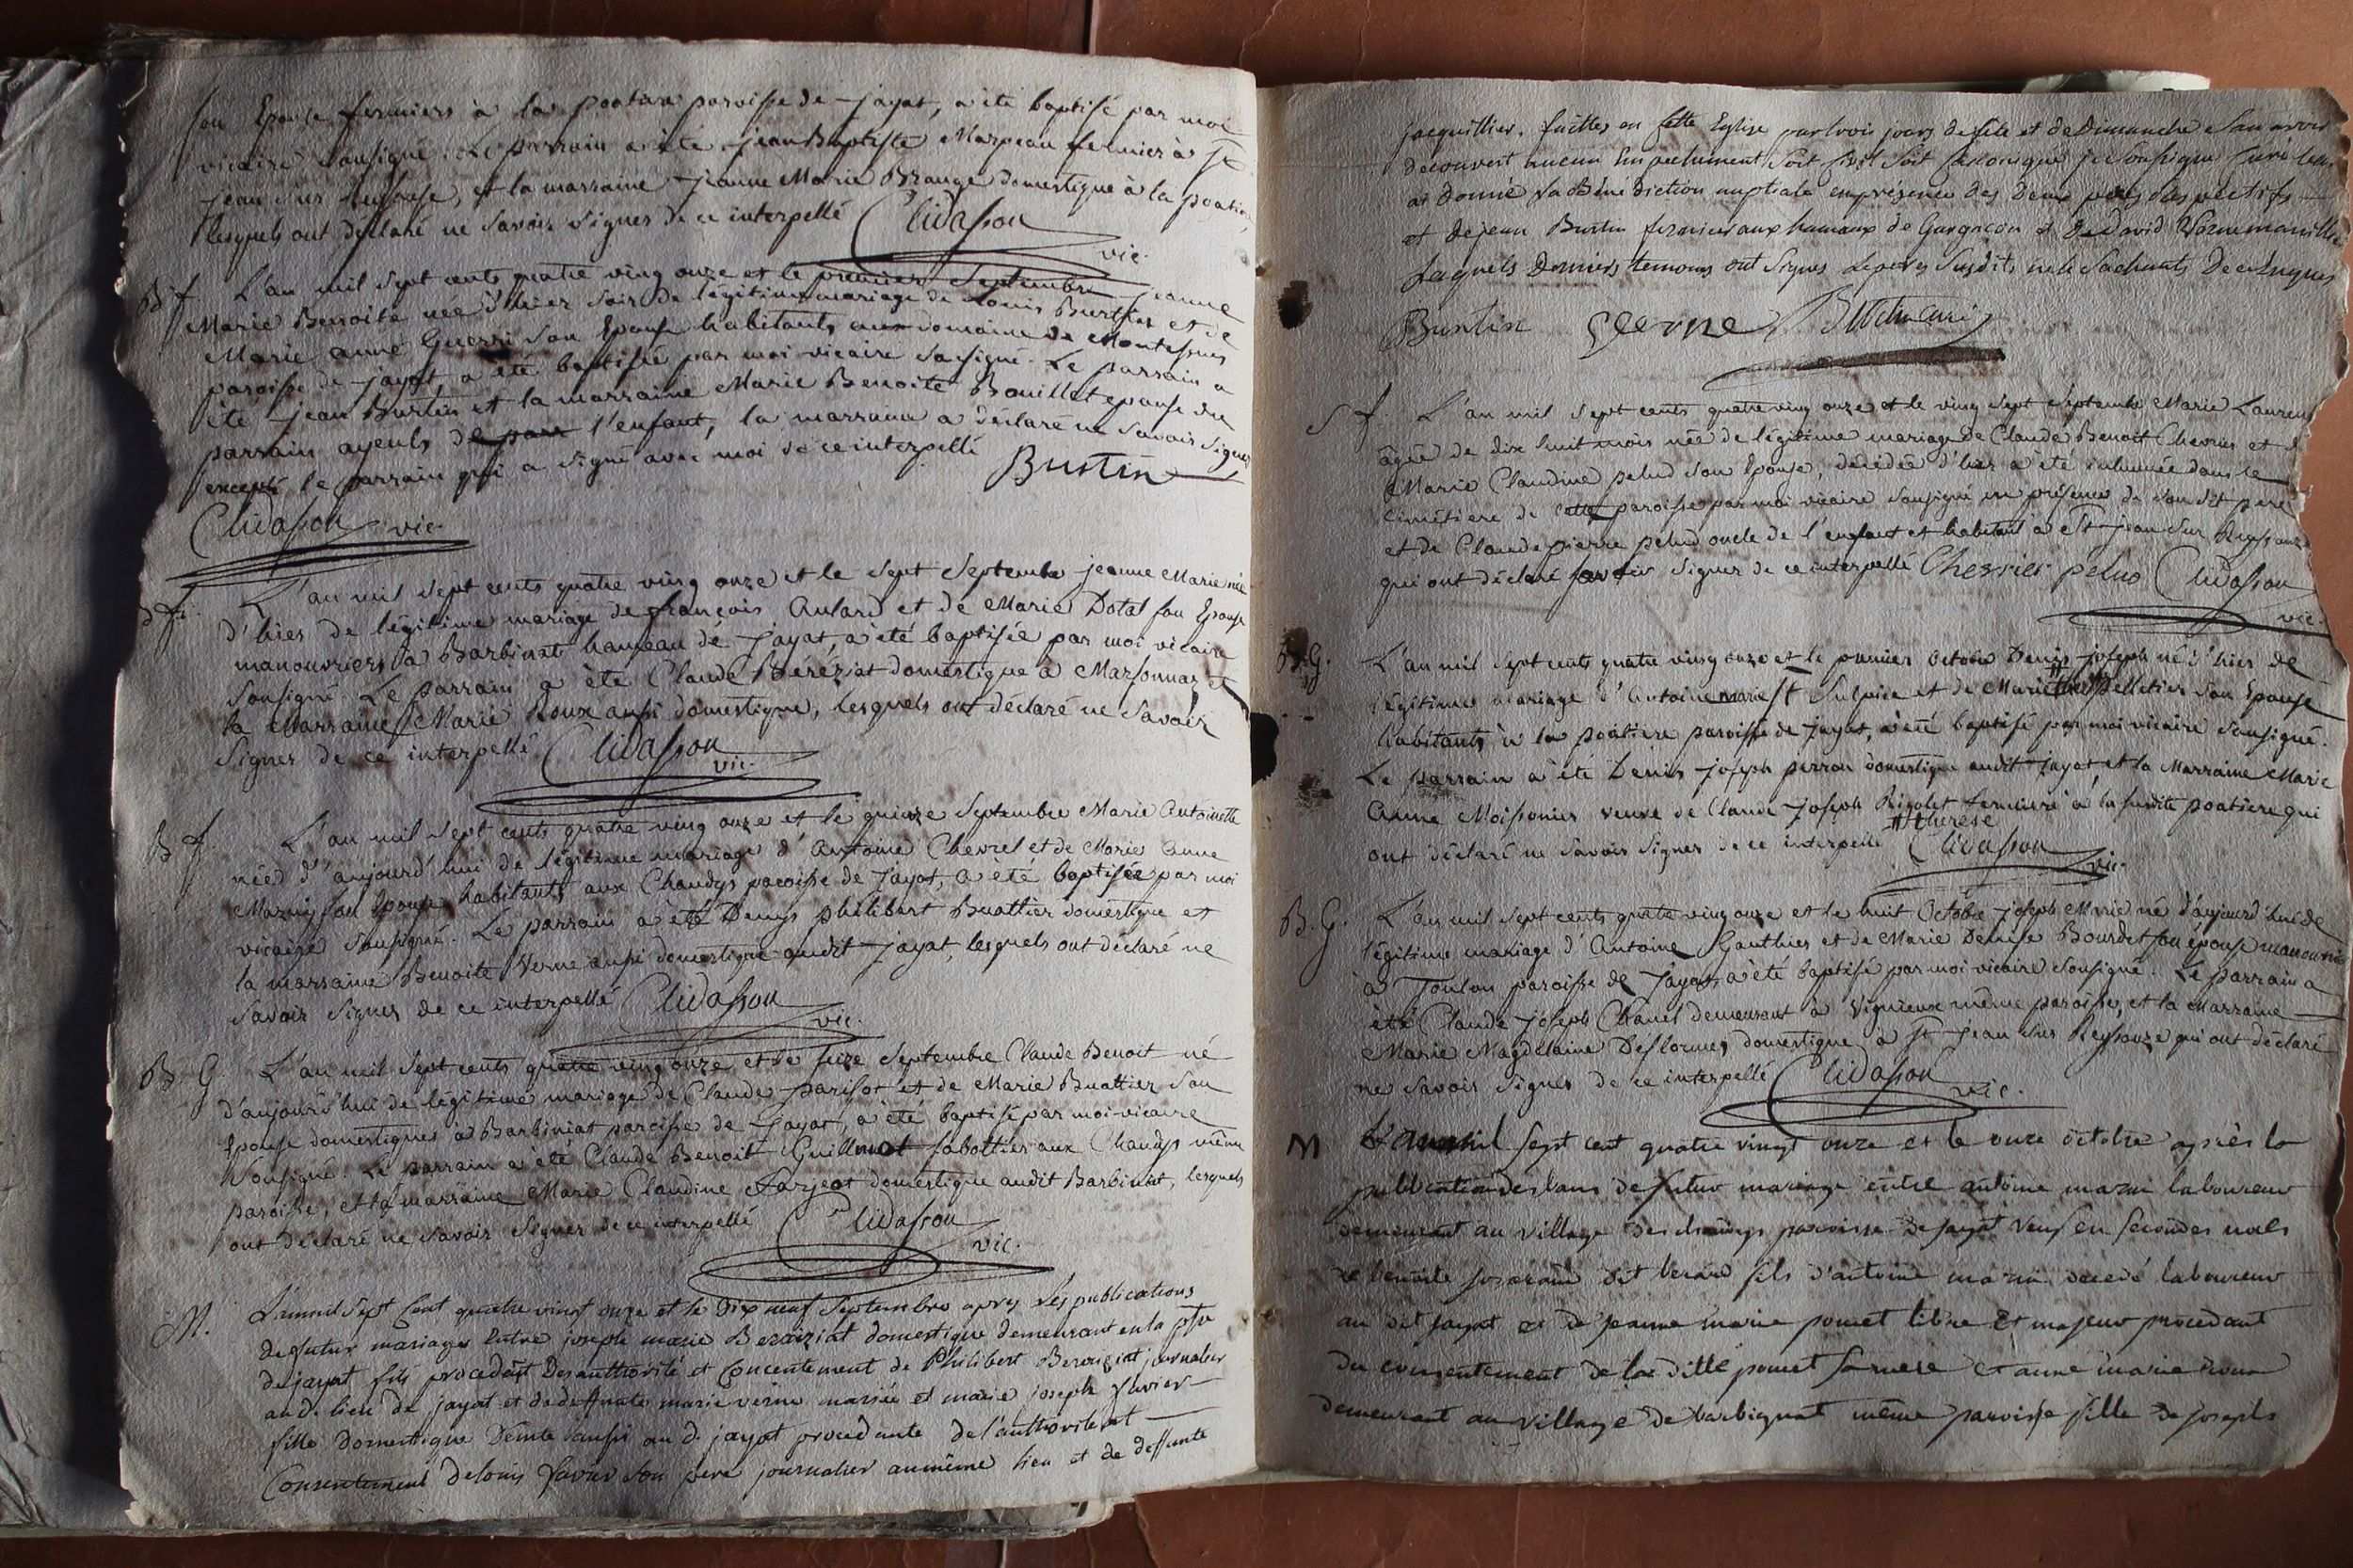 son Epouse fermiers à la poatiere paroisse de jayat, a été baptisé par moi
vicaire Sousigné. Le parrain a été jean Baptiste Marpeau fermier à St
jean sur Reysouse, et la marraine jeanne Marie Brange domestique à la poatiere
lesquels ont déclaré ne savoir signer de ce interpellé Clidasson
vic.
B f. L'an mil sept cents quatre ving onze et le premier Septembre jeanne
Marie Benoite née d'hier soir de légitime mariage de Louis Burtin et de
Marie anne Guerri son Epouse habitants au domaine de Montessuis
paroisse de jayat, a été baptisée par moi vicaire sousigné. Le parrain a
été jean Burtin et la marraine Marie Benoite Bouillet epouse du
parrain ayeuls de l'enfant, la marraine a déclaré ne savoir signer
excepté le parrain qui a signé avec moi de ce interpellé
Burtin
Clidasson vic.
B f. L'an mil sept cents quatre ving onze et le sept Septembre jeanne Marie née
d'hier de légitime mariage de françois Aulard et de Marie Dotal son Epouse
manouvriers à Barbinat hameau de jayat, a été baptisée par moi vicaire
Sousigné Le parrain a été Claude Bereziat domestique à Marsonnas et
la Marraine Marie Roux aussi domestique, lesquels ont déclaré ne savoir
signer de ce interpellé Clidasson
vic.
B f. L'an mil sept cents quatre ving onze et le quinze Septembre Marie Antoinette
née d'aujourd'hui de légitime mariage d'Antoine Chevrel et de Marie Anne
Mazuy son Epouse habitants aux Chaudys paroisse de jayat, a été baptisée par moi
vicaire sousigné. Le parrain a été Denys philibert Buattier domestique et
la marraine Benoite Verne aussi domestique audit jayat, lesquels ont déclaré ne
savoir signer de ce interpellé Clidasson
vic.
B. G. L'an mil sept cents quatre ving onze et le seize Septembre Claude Benoit né
d'aujourd'hui de légitime mariage de Claude parisot et de Marie Buattier son
Epouse domestiques à Barbiniat paroisse de Jayat, a été baptisé par moi vicaire
Sousigné. Le parrain a été Claude Benoit Guillemot sabottier aux Chaudys même
paroisse, et la marraine Marie Claudine Farjeot domestique audit Barbinat, lesquels
ont déclaré ne savoir signer de ce interpellé Clidasson
vic.
M. L'an mil sept Cent quatre vingt onze et le dix neuf Septembre apres les publications
de futur mariage Entre joseph marie Bereiziat domestique demeurant en la psse
de jayat fils procedant des authorité et Concentement de Philibert Bereiziat journalier
au d. lieu de jayat et de deffunte marie verne mariée et marie joseph favier
fille domestique aussi au d. jayat procedante de l'authorité et
Consentement de louis favier son pere journalier au même lieu et de deffunte
jacquillier, faittes en cette Eglise par trois jours de fete et de Dimanche sans avoir
decouvert aucun Empechement soit civil soit Canonique je sousigné Curé leur
ai donné la Bénédiction nuptiale en présence des deux peres respectifs
et de jean Burtin fermier aux hameaux de Gargacon et de David
Laquels derniers temoins ont signes Les peres susdits ne le Sachants De ce Enquis
Burtin
S f. L'an mil sept cents quatre ving onze et le ving sept Septembre Marie Laurence
âgée de dix huit mois née de légitime mariage de Claude Benoit Chevrier et de
Marie Claudine pelud son Epouse, décédée d'hier a été inhumée dans le
cimétiere de cette paroisse par moi vicaire sousigné en présence de son dit pere
et de Claude pierre pelud oncle de l'enfant et habitant à St jean sur Reyssouze
qui ont déclaré savoir signer de ce interpellé Chevrier pelud Clidasson
vic.
B. G. L'an mil sept cents quatre ving onze et le premier Octobre Denis joseph né d'hier de
légitime mariage d'Antoine marie St Sulpice et de Marie pelletier son Epouse
habitants à la poatiere paroisse de jayat, a été baptisé par moi vicaire sousigné.
Le parrain a été Denis joseph perron domestique audit jayat, et la Marraine Marie
Anne Moissonier veuve de Claude joseph Rigolet fermiere à la susdite poatiere qui
# therese
ont déclaré ne savoir signer de ce interpellé Clidasson
vic.
B. G. L'an mil sept cents quatre ving onze et le huit Octobre joseph Marie né d'aujourd'hui de
légitime mariage d'Antoine Gauthier et de Marie Denise Bourdet son épouse manouvriers
à Toulon paroisse de Jayat, a été baptisé par moi vicaire sousigné. Le parrain a
été Claude joseph Chanel demeurant à Vignieux même paroisse, et la Marraine
Marie Magdelaine Desflormes domestique à St jean sur Reyssouze qui ont déclaré
ne savoir signer de ce interpellé Clidasson
vic.
M L'an mil sept cent quatre vingt onze et le onze octobre après la
publication des bans de futur mariage entre antoine mazui laboureur
demeurant au village des chaudys paroisse de jayat veuf en secondes nocls
de benoite dit berard fils d'antoine mazui decedé laboureur
au dit jayat et de jeanne marie poncet libre et majeur procedant
du consentement de la ditte poncet sa mere et anne marie roux
demeurant au village de barbignat même paroisse fille de joseph